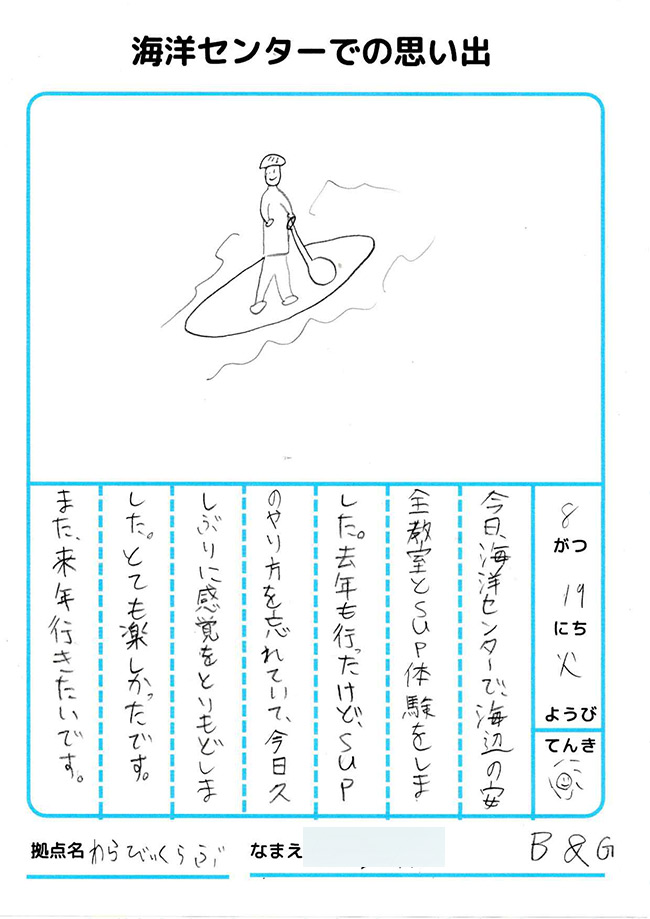 海洋センターでの思い出
8
がつ
19
にち
火
ようび
てんき
今日、海洋センターで、海辺の安
全教室とSUP体験をしま
した。去年も行ったけど、SUP
のやり方を忘れていて、今日久
しぶりに感覚をとりもどしま
した。とても楽しかったです。
また、来年行きたいです。
拠点名 わらびぃくらぶ
なまえ
B&G